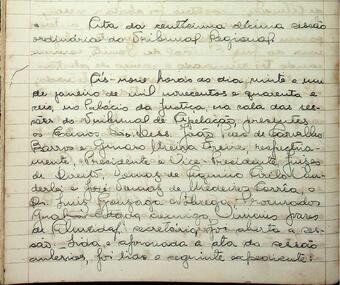 Acta da centésima décima sessão
ordinaria do Tribunal Regional.
Ás nove horas do dia vinte e um
de janeiro de mil novecentos e quarenta e
seis, no Palácio da Justiça, na sala das ses-
sões do Tribunal de Apelação, presentes
os Exmos. Srs. Dess. João Paes de Carvalho
Barros e Genaro Freire, respectiva-
mente, Presidente e Vice-Presidente, Juizes
de Direito, Tomaz de Aquino Cirilo Wan-
derlei e José Tomaz de Medeiros Corrêa, o
Dr. Luis Gonzaga Nobrega, Procurador
Regional, comigo, Soares
de Almeida, secretário, foi aberta a ses-
são. Lida e aprovada a ata da sessão
anterior, foi lido o seguinte expediente: